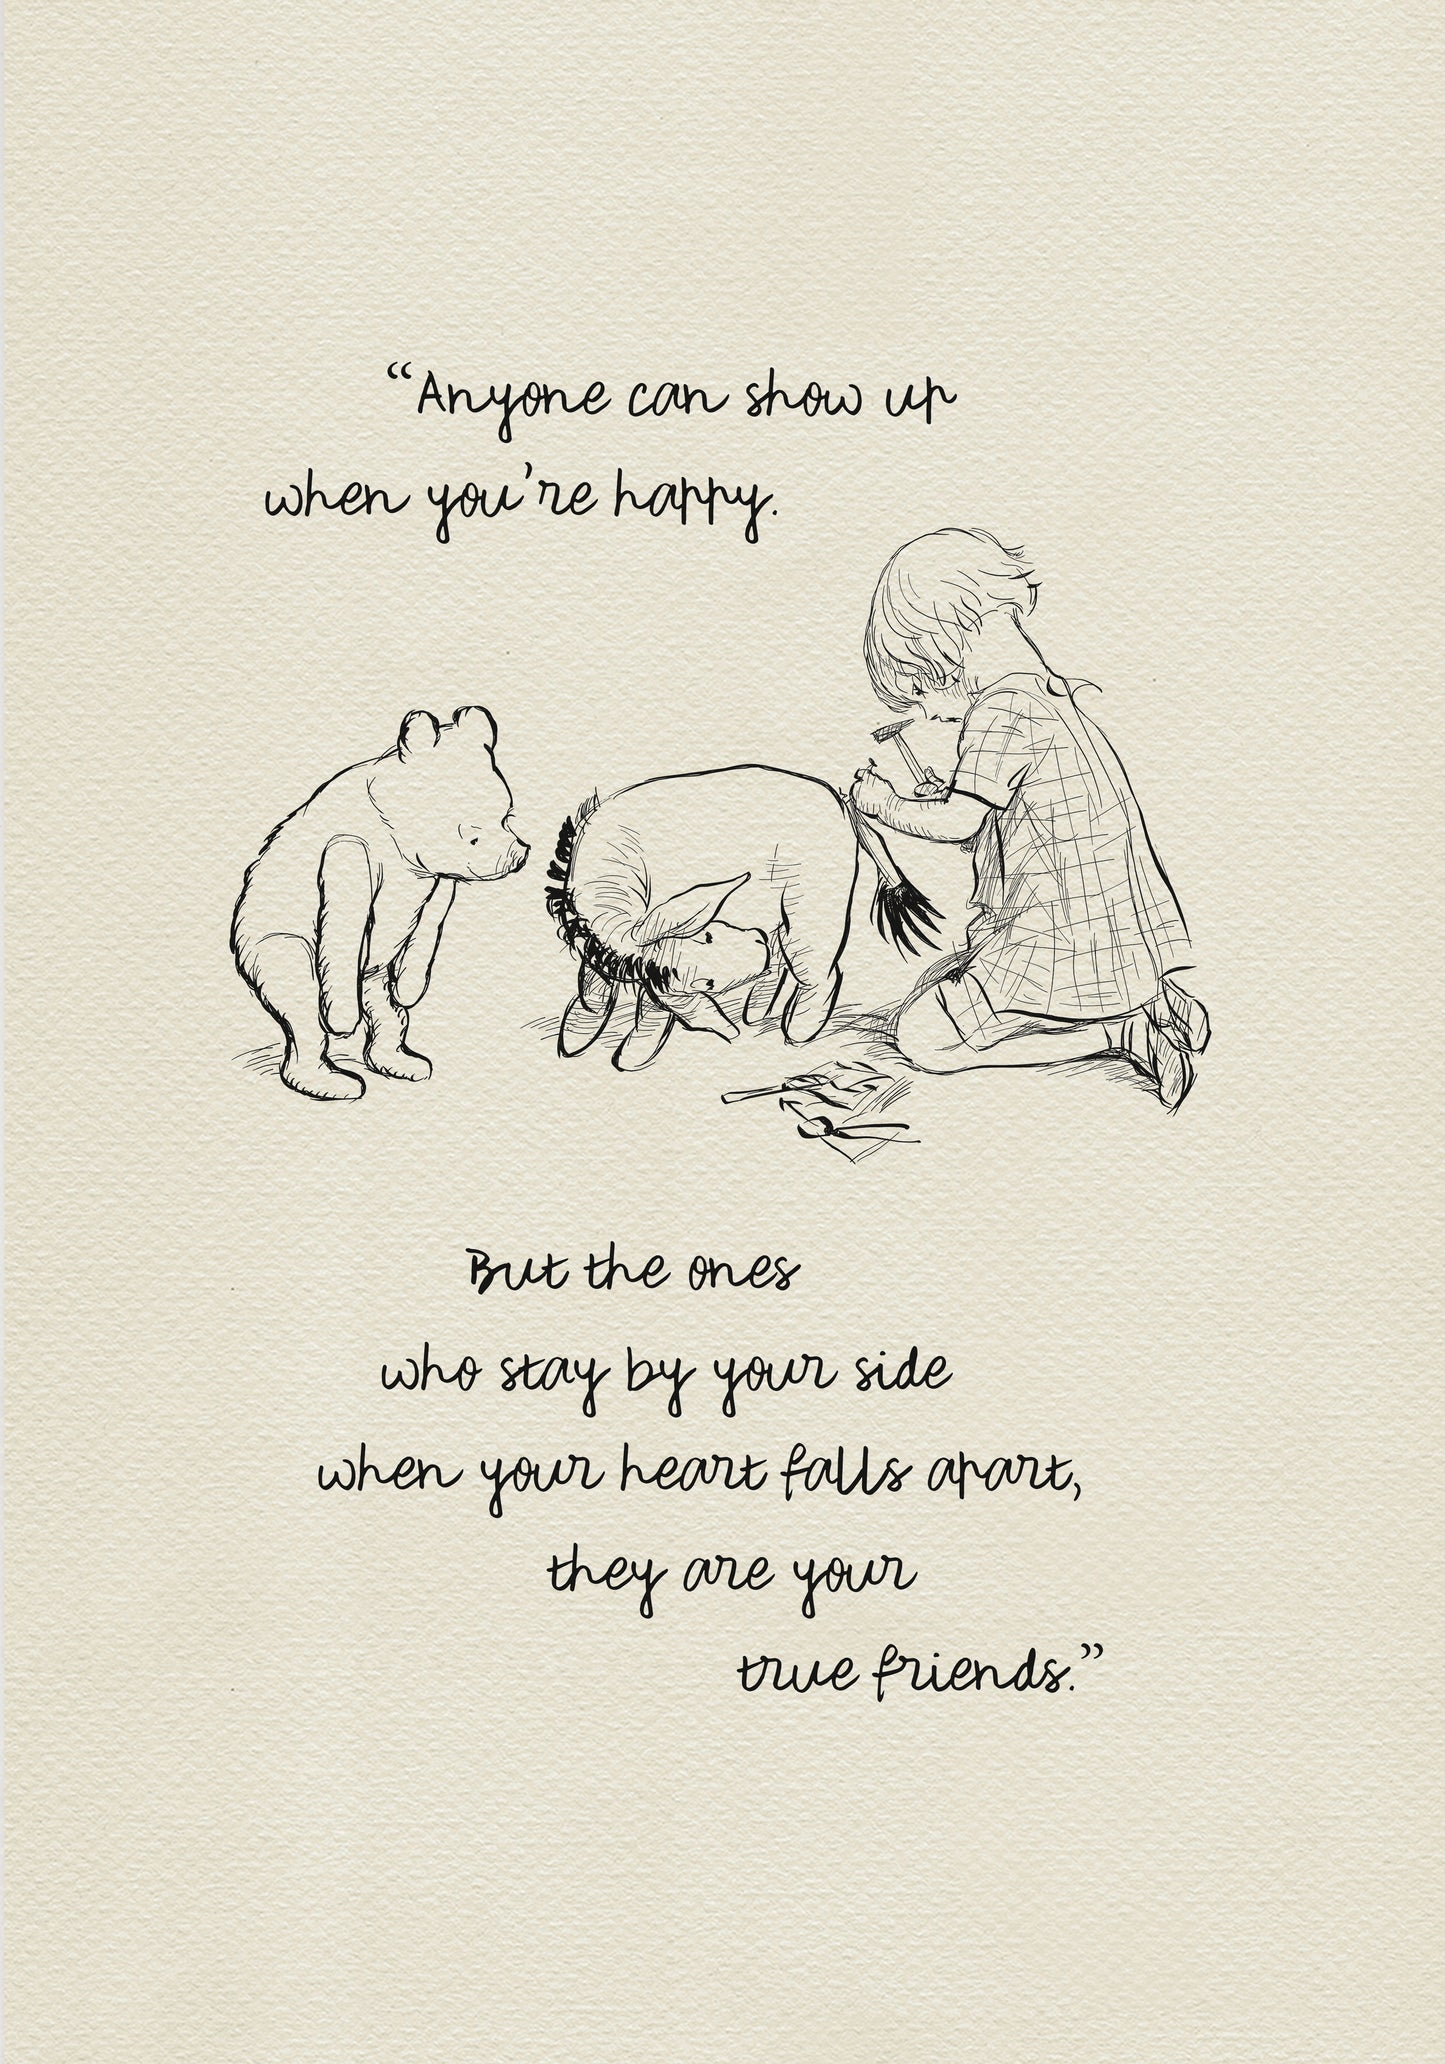 “Anyone can show up
when you’re happy.
But the ones
who stay by your side
when your heart falls apart,
they are your
true friends.”